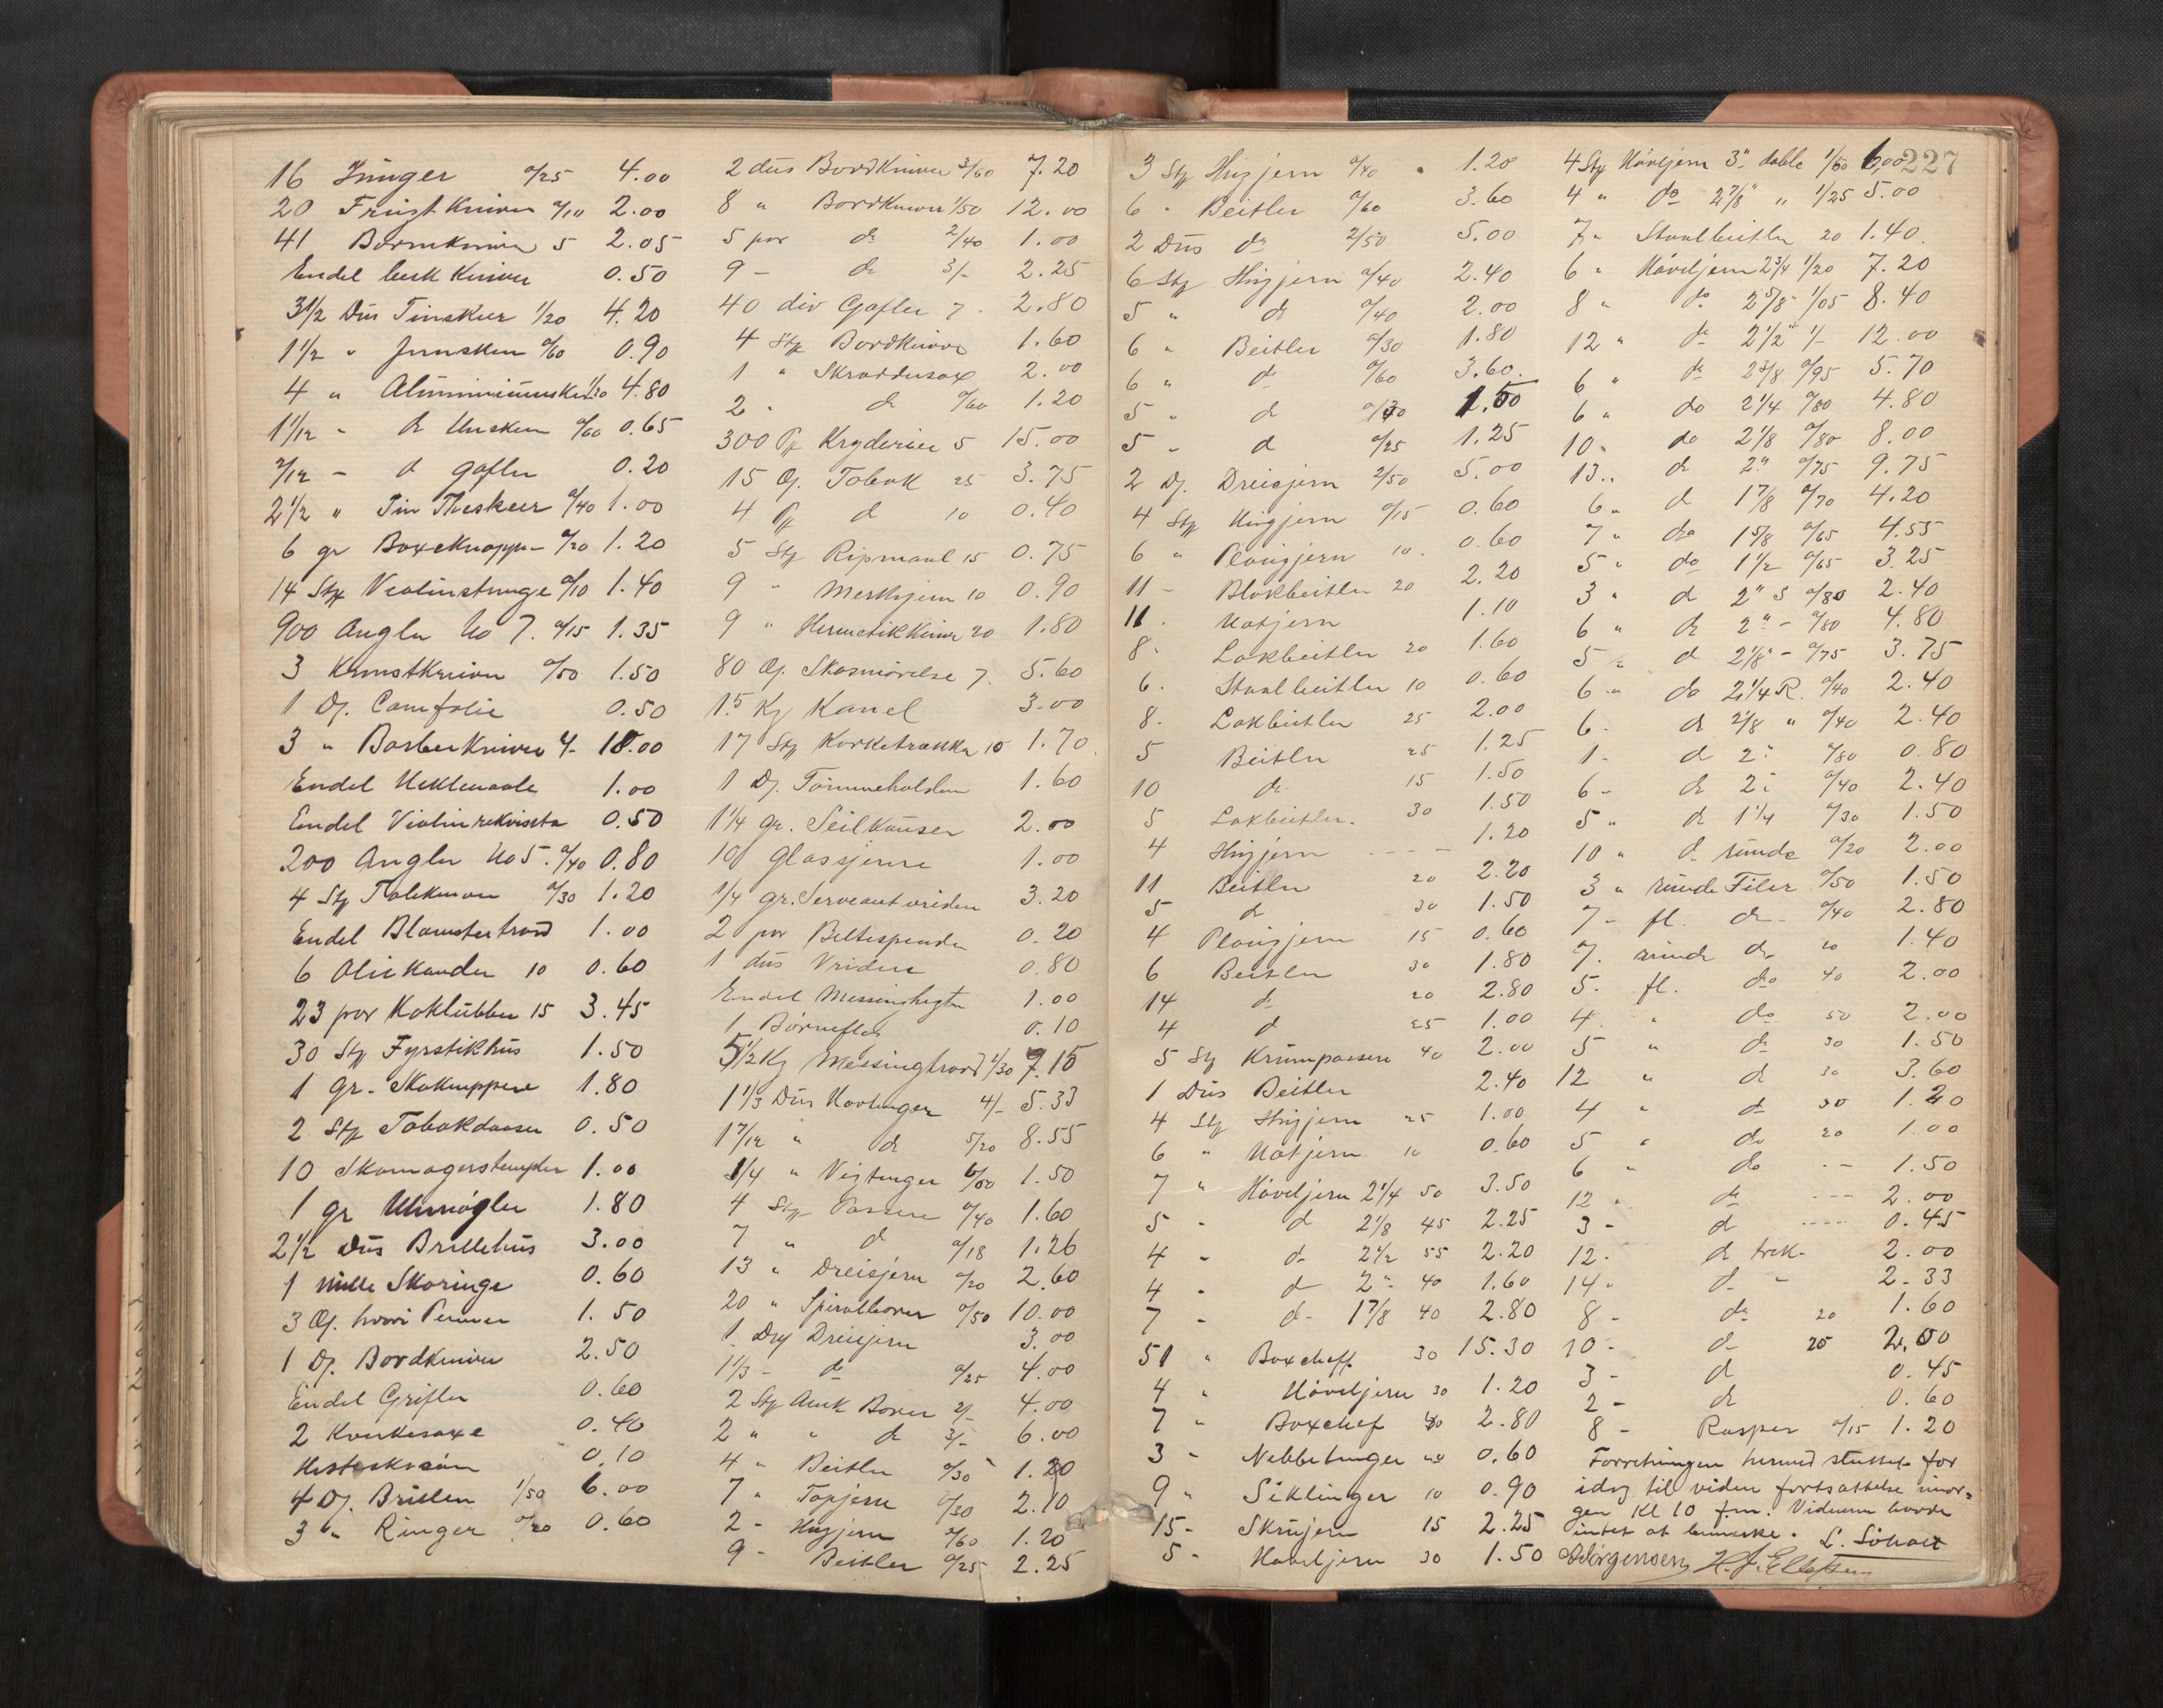 16 Junger a/25 4.00
20 Frugtkniver a/10 2.00
41 Barneknive 5 2.05
Endel besk Kniver 0.50
3 1/2 Dus Tinskeer 1/20 4.20
1 1/2 " Jernskeer a/60 0.90
4 " Aluminiumske 1/20 4.80
1 1/12 - d a/60 0.65
4/12 - d gafler 0.20
2 1/2 " Tin Theskeer a/40 1.00
6 gr Buxeknapper a/20 1.20
14 Stk Violinstrenge a/10 1.40
900 Angler No 7. a/15 1.35
3 Kunstkniver a/50 1.50
1 Dj. Camfolie 0.50
3 " Barberkniver 4- 10.00
Endel Heklenaale 1.00
Endel Violinrekvisita 0.50
200 Angler No 5. a/40 0.80
4 Stk Tolekniver a/30 1.20
Endel Blomstertraad 1.00
6 Oliekander 10 0.60
23 par Koklubber 15 3.45
30 Stk Fyrstikhus 1.50
1 gr. Skoknappere 1.80
2 Stk Tobakdaaser 0.50
10 Skomagerstempler 1.00
1 gr Uhrnøgler 1.80
2 1/2 Dus Brillehus 3.00
1 mille Skoringe 0.60
3 Æ. Penner 1.50
1 Dj. Bordkniver 2.50
Endel Grifler 0.60
2 0.40
0.10
4 Dj. Briller 1/50 6.00
3 " Ringer a/20 0.60
2 dus Bordkniver 3/60 7.20
8 " Bordkniver 1/50 12.00
5 par do 2/40 1.00
9 - do 3/- 2.25
40 div Gafler 7. 2.80
4 Stk Bordknive 1.60
1 " Skræddersax 2.00
2 " d a/60 1.20
300 Pk Kryderier 5 15.00
15 Æ. Tobak 25 3.75
4 Pk d 10 0.40
5 Stk Ripmaal 15 0.75
9 " Merkjern 10 0.90
9 " Hermetikkniver 20 1.80
80 Æ. Skosmørelse 7. 5.60
1.5 Kg Kanel 3.00
17 Stk Korketrækker 10 1.70
1 Dj. Tømmeholdere 1.60
1 1/4 gr. Seilkauser 2.00
10 Glassjerne 1.00
1/4 gr. Servantvridere 3.20
2 par Beltespender 0.20
1 dus Vridere 0.80
Endel Messinghegter 1.00
1 Børneflas 0.10
5 1/2 Kg Messingtraad 1/30 7.15
1 1/3 Dus Hovtenger 4/- 5.33
1 7/12 " d 5/20 8.55
1/4 " Vigtenger 6/00 1.50
4 Stk Passere a/40 1.60
7 " d a/18 1.26
13 " Dreiejern a/20 2.60
20 " Spiralborer a/50 10.00
1 Dreiejern 3.00
1 1/3 - do a/25 4.00
2 Stk Amk Borer 2/- 4.00
2 " " d 3/- 6.00
4 " Beitler a/30 1.20
7 " Topjern a/30 2.10
2 - Hugjern a/60 1.20
9 - Beitler a/25 2.25
3 Stk Hugjern a/40 1.20
6 " Beitler a/60 3.60
2 Dus do 2/50 5.00
6 Stk Hugjern a/40 2.40
5 " d a/40 2.00
6 " Beitler a/30 1.80
6 " d a/60 3.60.
5 " d a/30 1.50
5 " d a/25 1.25
2 Dj. Dreiejern 2/50 5.00
4 Stk Hugjern a/15 0.60
6 " Plougjern 10. 0.60
11 - Blokbeitler 20 2.20
11. Notjern 1.10
8. Lokbeitler 20 1.60
6. Staalbeitler 10 0.60
8. Lokbeitler 25 2.00
5 Beitler 25 1.25
10 do 15 1.50
5 Lokbeitler. 30 1.50
4 Hugjern 1.20
11 Beitler 20 2.20
5 d 30 1.50
4 Plougjern 15 0.60
6 Beitler 30 1.80
14 d 20 2.80
4 d 25 1.00
5 Stk Krumpassere 40 2.00
1 Dus Beitler 2.40
4 Stk Hugjern 25 1.00
6 " Notjern 10 0.60
7 " Høveljern 2 1/4 50 3.50
5 - d 2 1/8 45 2.25
4 - d 2 1/2 55 2.20
4 - d 2" 40 1.60
7 - d 1 7/8 40 2.80
51 " Boxcheff 30 15.30
4 " Høveljern 30 1.20
7 " Boxchef 40 2.80
3 - Nebbetenger 20 0.60
9 " Siklinger 10 0.90
15 - Skrujern 15 2.25
5 - Høveljern 30 1.50
227
4 Stk Høvljern 3" doble 1/50 6.00
4 " do 2 7/8 " 1/25 5.00
7 " Staalbeitler 20 1.40.
6 " Høveljern 2 3/4 1/20 7.20
8 " do 2 5/8" 1/05 8.40
12 " d 2 1/2" 1/- 12.00
6 " do 2 3/8 a/95 5.70
6 " do 2 1/4 a/80 4.80
10 - do 2 1/8 a/80 8.00
13.. d 2" a/75 9.75
6 " d 1 7/8 a/70 4.20
7 " do 1 5/8 a/65 4.55
5 " do 1 1/2 a/65 3.25
3 " d 2" S a/80 2.40
6 " d 2" - a/80 4.80
5 " d 2 1/8 - a/75 3.75
6 - do 2 1/4 R. a/40 2.40
6. d 2 1/8 " a/40 2.40
1 - d 2" a/80 0.80
6 - d 2" a/40 2.40
5 " d 1 1/4 a/30 1.50
10 " d runde a/20 2.00
3 " runde Filer a/50 1.50
7 - fl. do a/40 2.80
7. runde do 20 1.40
5 - fl. do 40 2.00
4. " do 50 2.00
5 " d 30 1.50
12 " d 30 3.60
4 " d 30 1.20
5 " do 20 1.00
6 " do -- 1.50
12 " d --- 2.00
3 - d ---- 0.45
12. d trek- 2.00
14 - d - 2.33
8 - do 20 1.60
10 - d 20 2.00
3 - d 0.45
2 - d 0.60
8 - Rasper a/15 1.20
Forretningen hermed sluttet for
idag til videre fortsættelse imor=
gen Kl 10 f.m. Vidnerne havde
intet at bemerke. L. Sölvoll
A Jørgensen H. J. Ellefsen